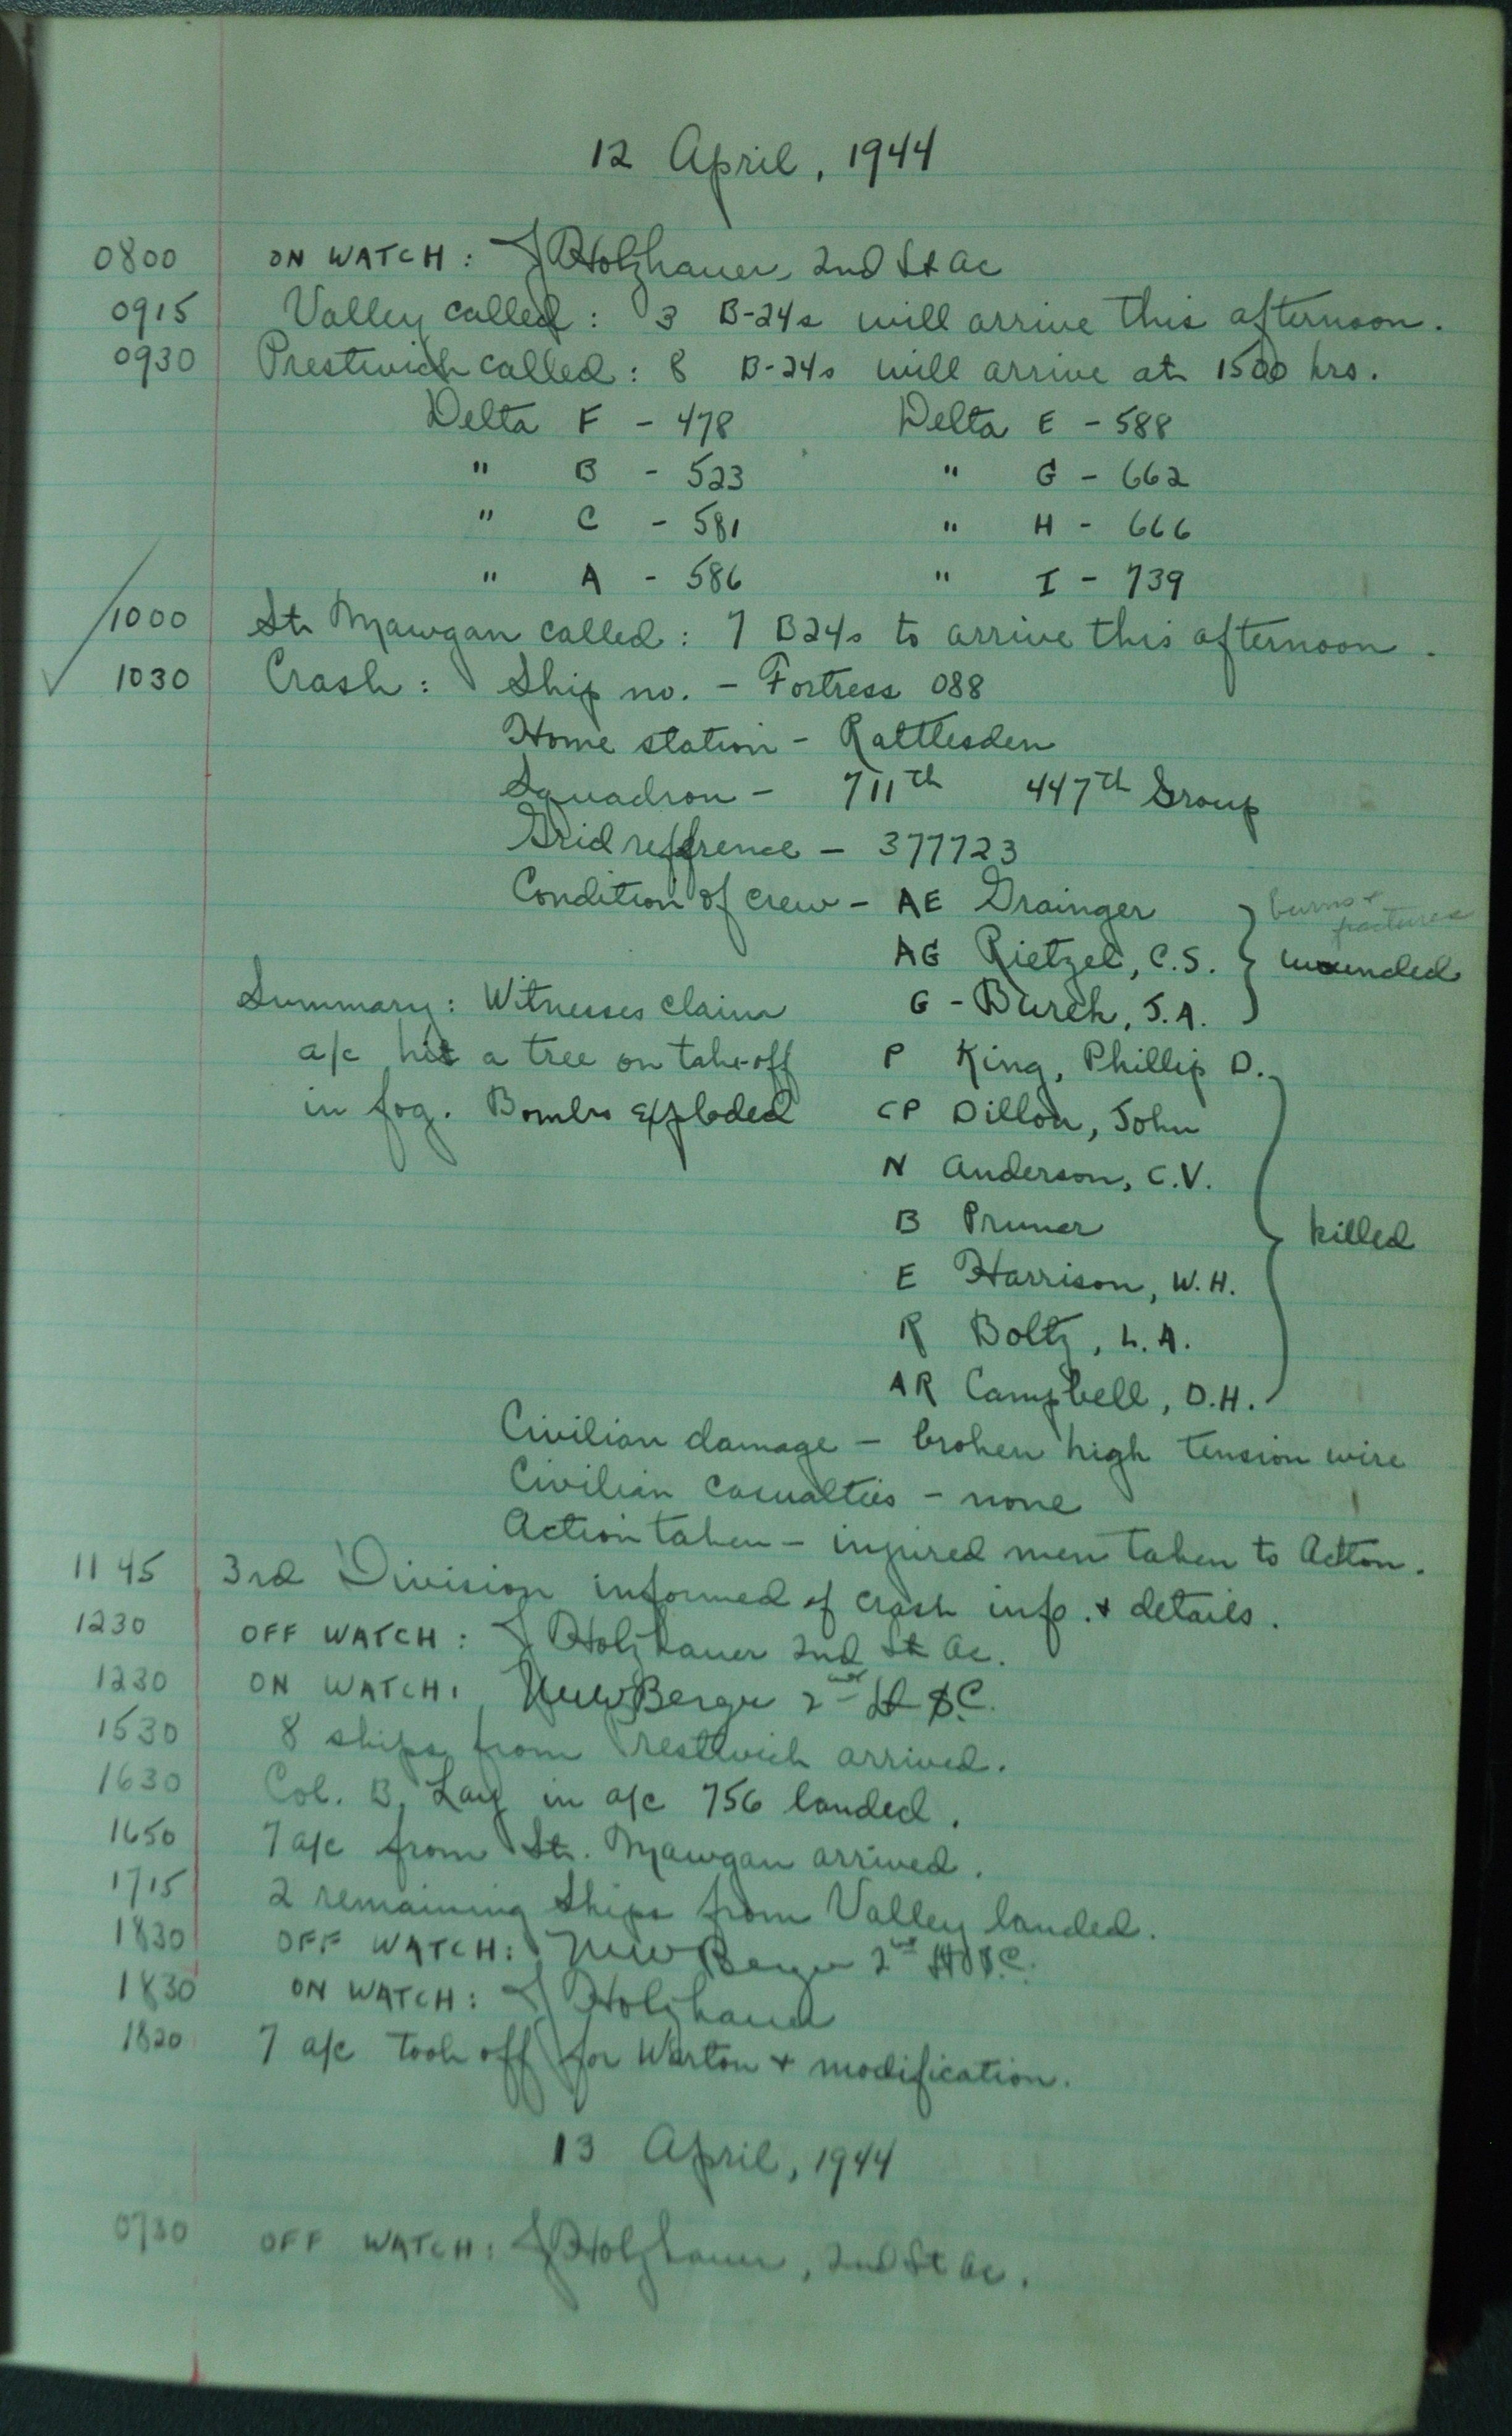 12 April, 1944
0800 ON WATCH: J Holzhauer, 2nd Lt AC
0915 Valley called: 3 B-24s will arrive this afternoon.
0930 Prestwich called: 8 B-24s will arrive at 1500 hrs.
Delta F - 478 Delta E - 588
" B - 523 " G - 662
" C - 581 " H - 666
" A - 586 " I - 739
1000 St. Mawgan called: 7 B24s to arrive this afternoon.
1030 Crash: Ship no. - Fortress 088
Home station - Rattlesden
Squadron - 711th 447th Group
Grid reffrence - 377723
Condition of crew - AE Grainger burns +
fractures
AG Rietzel, C.S. wounded
Summary: Witnesses claim G - Burch, J.A.
a/c hit a tree on take-off P King, Phillip D.
in fog. Bombs exploded CP Dillon, John
N Anderson, C.V.
B Pruner
killed
E Harrison, W.H.
R Boltz, L.A.
AR Campbell, D.H.
Civilian damage - broken high tension wire
Civilian casualties - none
Action taken - injured men taken to Acton.
1145 3rd Division informed of crash info. + details.
1230 OFF WATCH: J Holzhauer 2nd Lt AC.
1230 ON WATCH: Berger 2nd Lt
1530 8 ships from Prestwich arrived.
1630 Col. B. Lay in a/c 756 landed.
1650 7 a/c from St. Mawgan arrived.
1715 2 remaining ships from Valley landed.
1830 OFF WATCH: Berger 2nd
1830 ON WATCH: J Holzhauer
1820 7 a/c took off for Warton + modification.
13 April, 1944
0730 OFF WATCH: J Holzhauer, 2nd Lt AC.